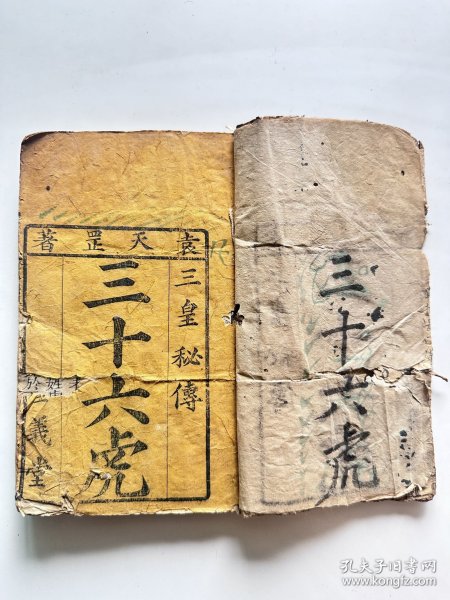 袁天罡著
三皇秘傳
三十六虎
義堂
三十六虎
孔夫子旧书网
www.kongfz.com